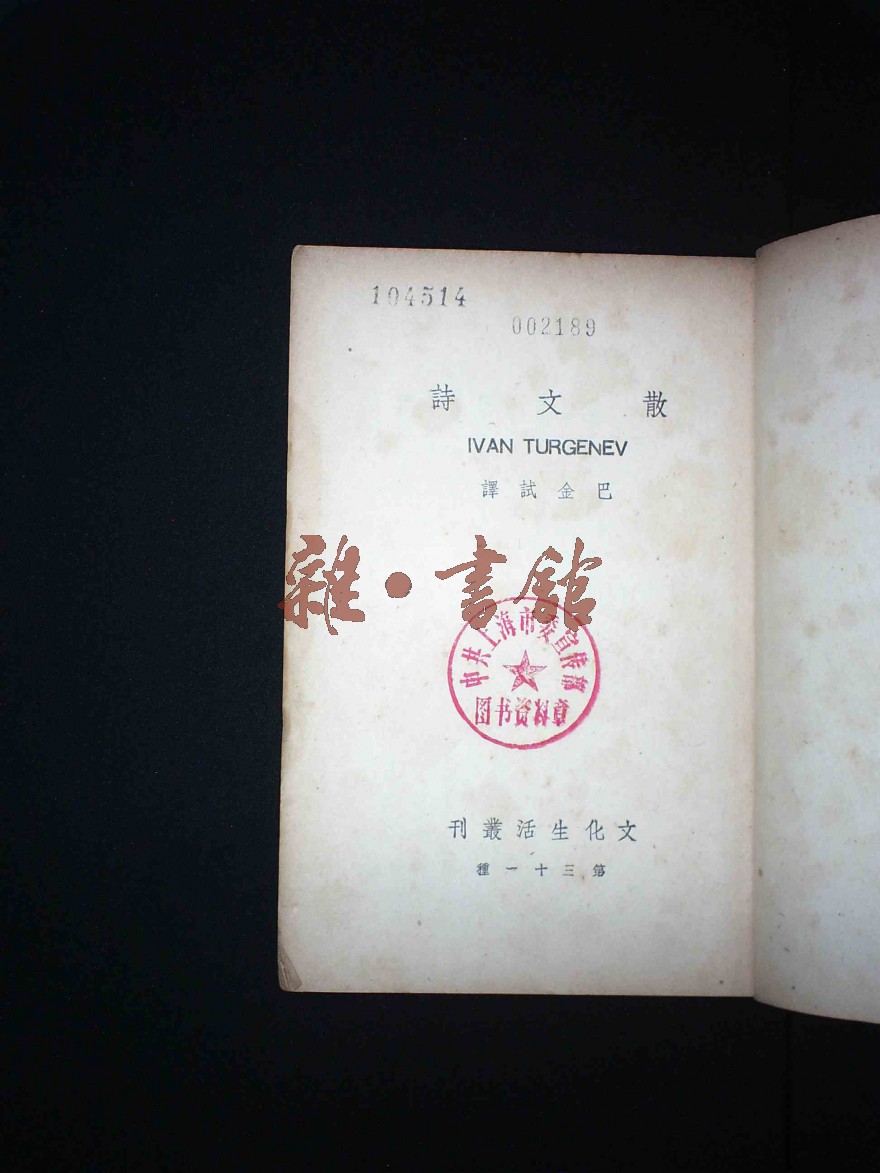 104514
002189
散文詩
IVAN TURGENEV
巴金試譯
雜·書館
中共上海市委宣传部
图书资料章
文化生活叢刊
第三十一種